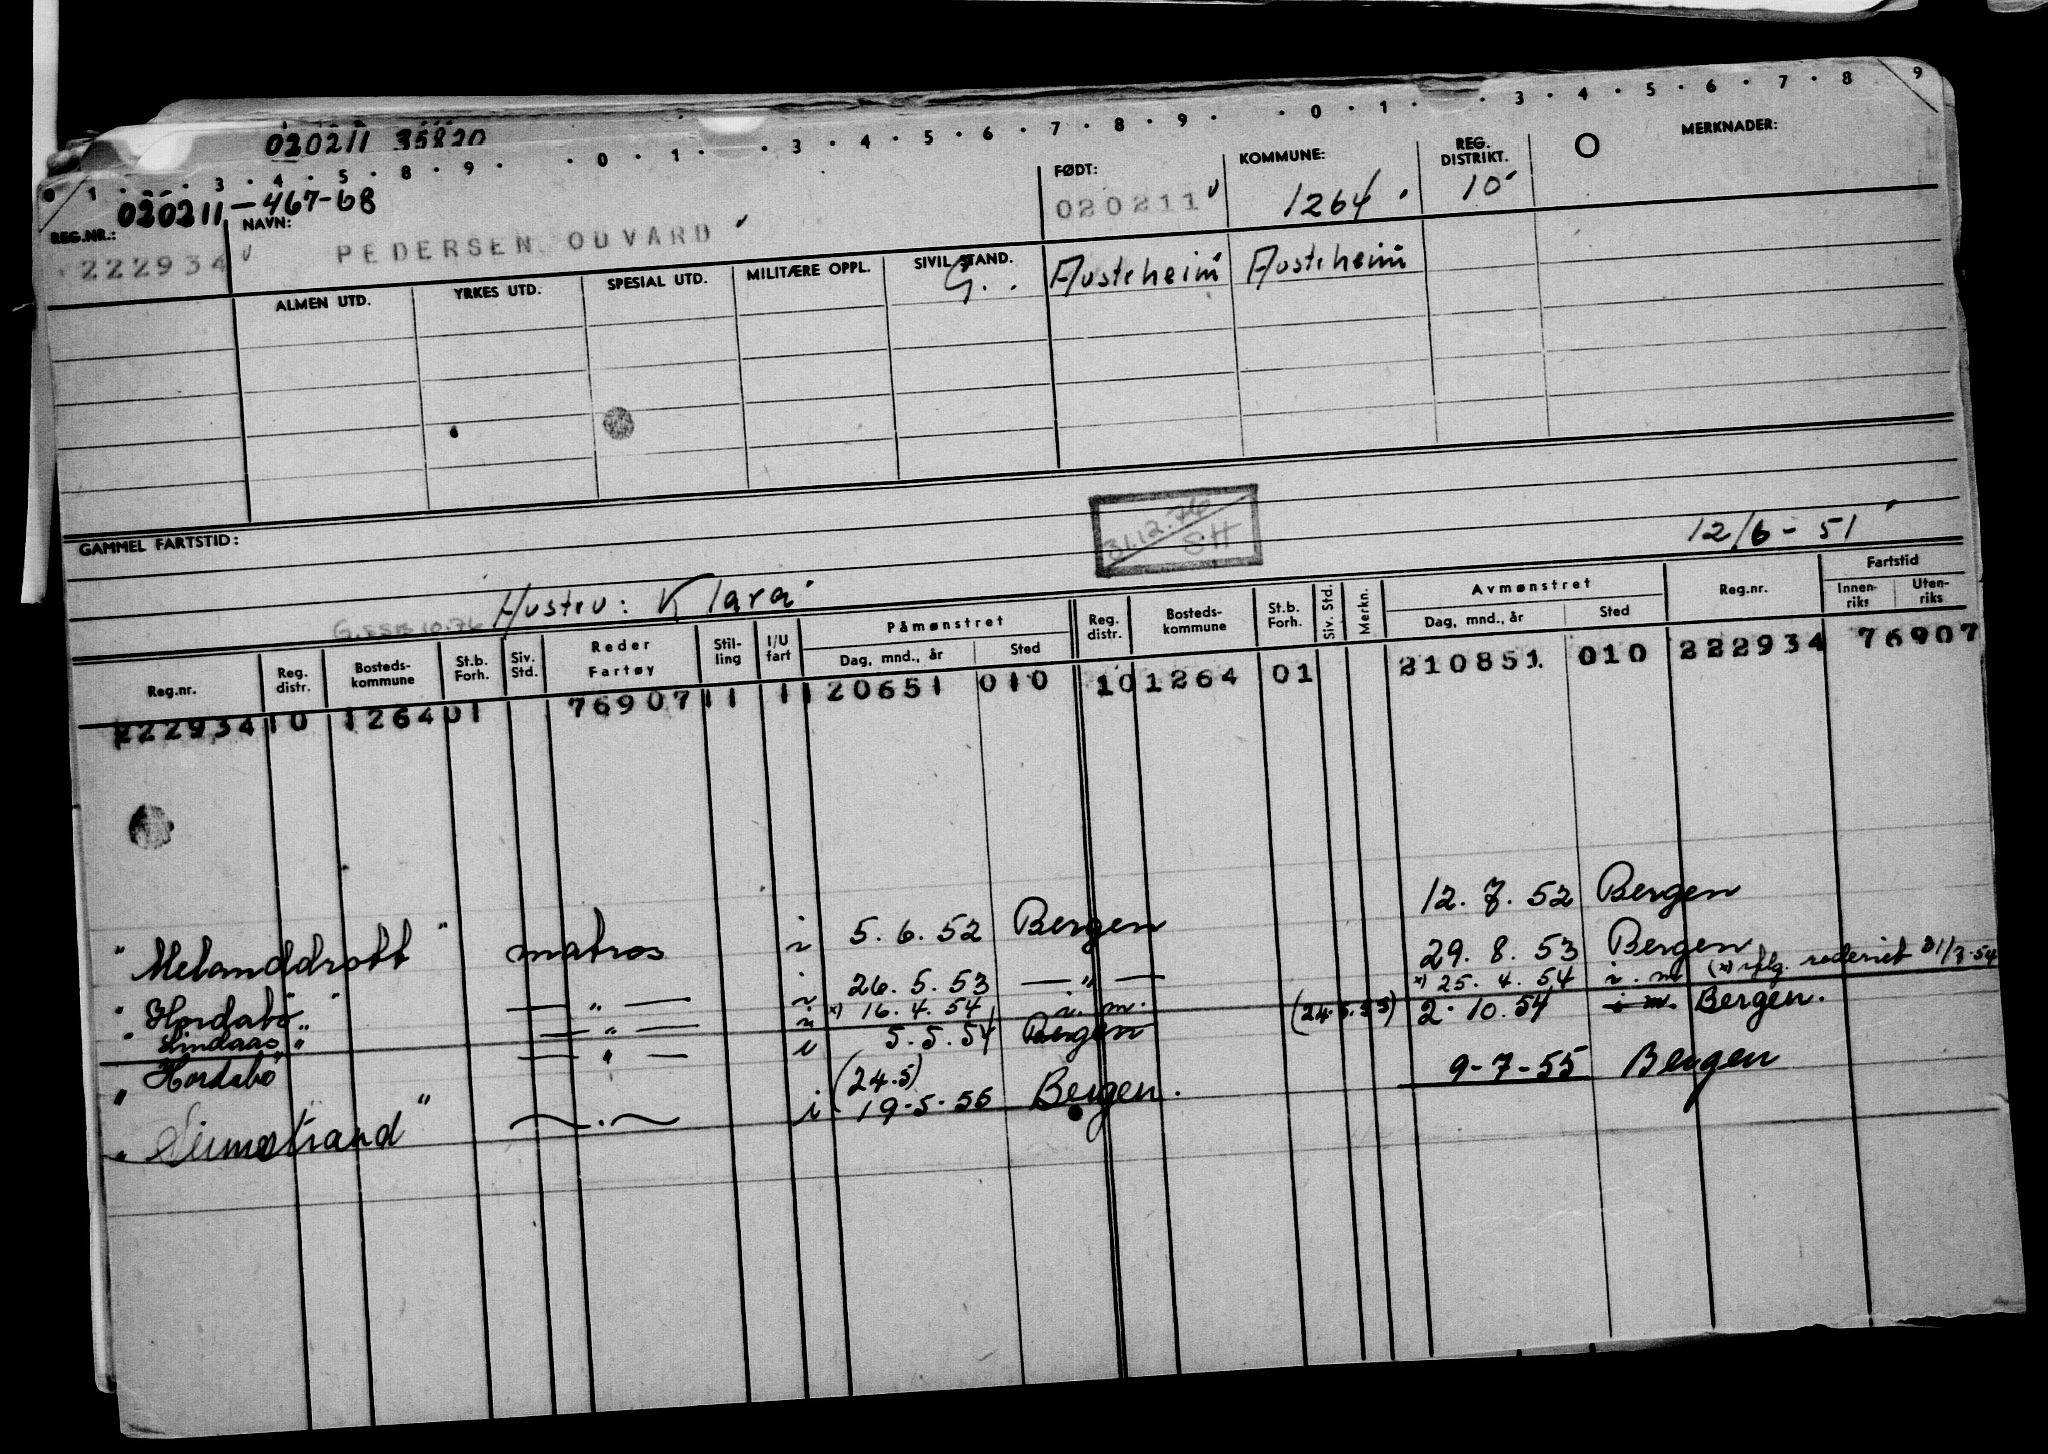 020211 35820
1 · · 3 · 4 · 5 · 8 · 9 · · 0 · 1 · · 3 · 4 · 5 · 6 · 7 · 8 · 9 · · 0 · 1 · · 3 · 4 · 5 · 6 · 7 · 8 9
020211-467-68
REG.NR.: NAVN: FØDT: KOMMUNE: REG. DISTRIKT. MERKNADER:
222934 PEDERSEN ODVARD 020211 1264 10
ALMEN UTD. YRKES UTD. SPESIAL UTD. MILITÆRE OPPL. SIVIL STAND. G. Austrheim Austrheim
GAMMEL FARTSTID:
31.12.76
SH
12/6-51
Hustru: Klara
Reg.nr. Reg. distr. Bosteds-kommune St.b. Forh. Siv. Std. Reder Fartøy Stil-ling I/U fart Påmønstret Dag, mnd., år Sted Reg. distr. Bosteds-kommune St.b. Forh. Siv. Std. Merkn. Avmønstret Dag, mnd., år Sted Reg.nr. Fartstid Innen-riks Uten-riks
222934 10 1264 01 76907 11 1 120651 010 10 1264 01 210851 010 222934 76907
"Melanddrott" matros i 5.6.52 Bergen 12.7.52 Bergen
"Hordabø" — " — i 26.5.53 — " — 29.8.53 Bergen
"Lindaas" — " — i x) 16.4.54 i.m. x) 25.4.54 i.m (x)
"Hordabø" — " — i 5.5.54 Bergen (24.5.55) 2.10.54 i m. Bergen.
(24.5)
" — . — i 19-5-55 Bergen. 9-7-55 Bergen